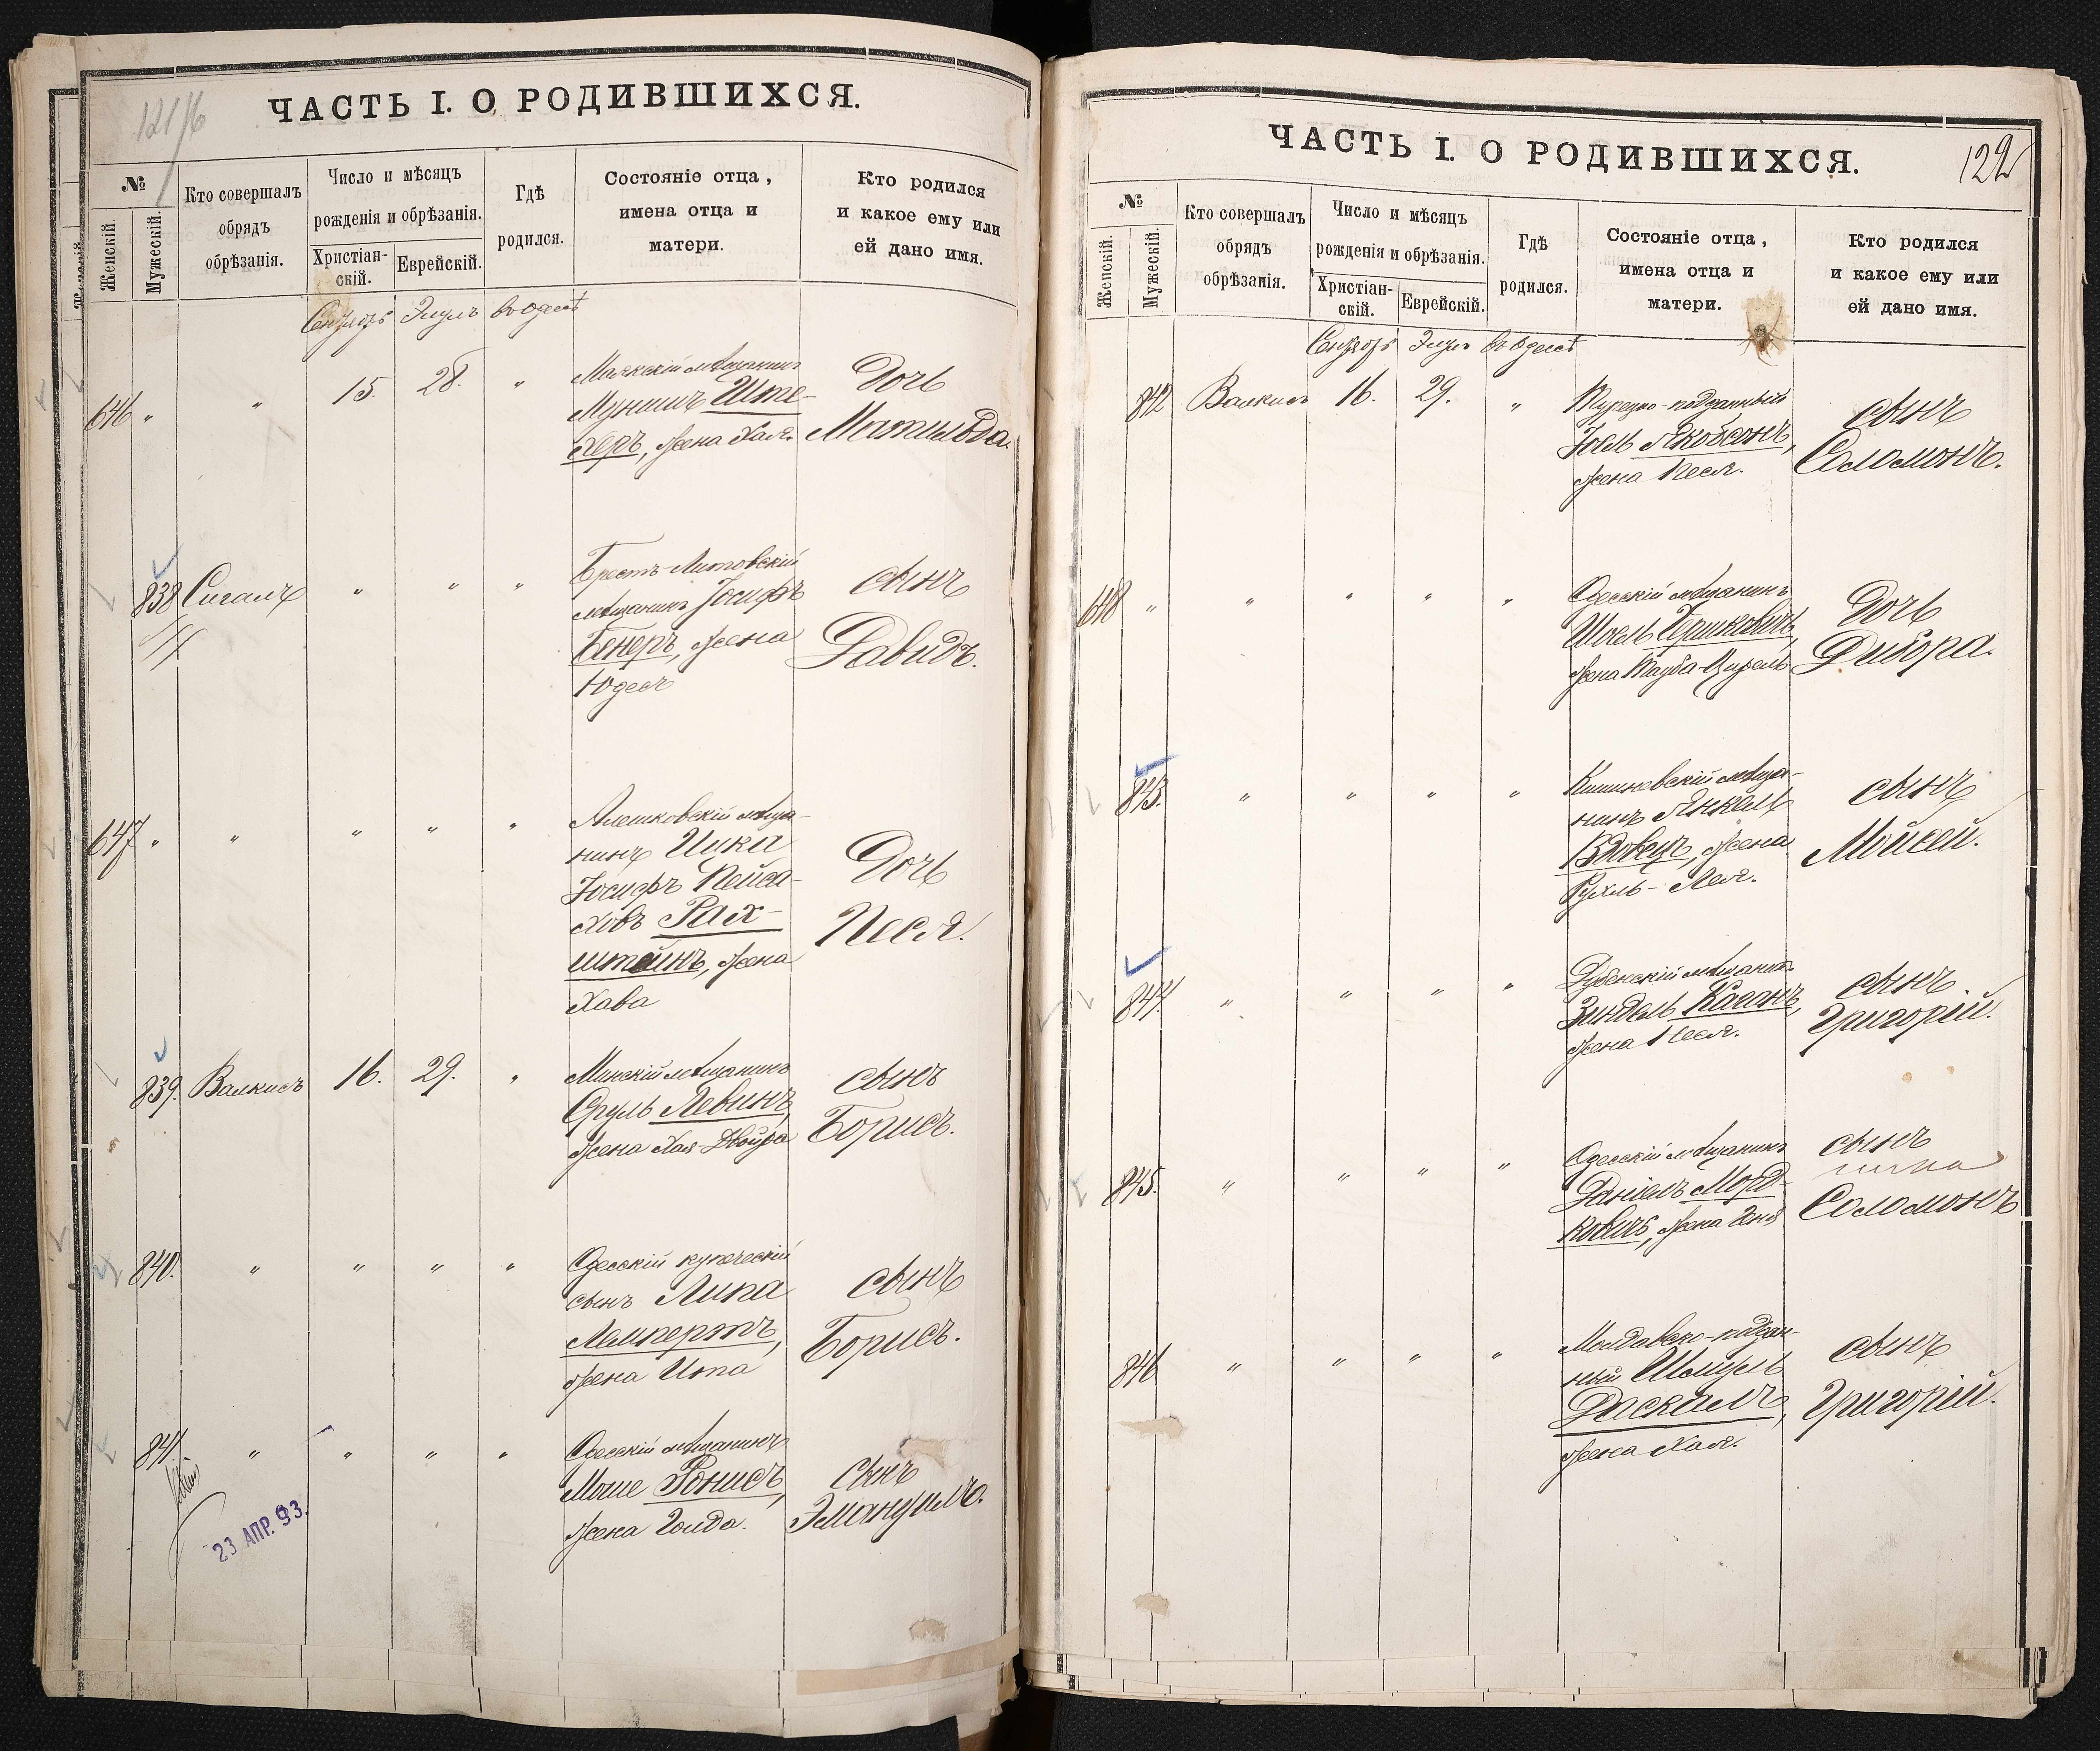 121/б
ЧАСТЬ I. О РОДИВШИХСЯ.
№
Женскій.
Мужескій.
Кто совершалъ
обрядъ
обрѣзанія.
Число и мѣсяцъ
рожденія и обрѣзанія.
Христіан-
скій.
Еврейскій.
Гдѣ
родился.
Состояніе отца,
имена отца и
матери.
Кто родился
и какое ему или
ей дано имя.
Сентябрь Элулъ въ Одессѣ
646 " " 15. 28. "
Маякскій мѣщанинъ
Мунишъ Ште-
херъ, жена Хая.
Дочь
Матильда.
838 Сигалъ " " "
Брестъ-Литовскій
мѣщанинъ Іосифъ
Бенеръ, жена
Юдесъ
сынъ
Давидъ.
647 " " " " "
Алешковскій мѣща-
нинъ Ицка
Іосифъ Пейса-
ховъ Рах-
штейнъ, жена
Хава
Дочь
Песя.
839. Валкисъ 16. 29. "
Минскій мѣщанинъ
Сруль Левинъ,
жена Хая-Двойра
сынъ
Борисъ.
840. " " " "
Одесскій купеческій
сынъ Липа
Лемпертъ,
жена Ита
сынъ
Борисъ.
841. " " " "
Одесскій мѣщанинъ
Моше Ронисъ,
жена Голда.
Сынъ
Эмануилъ.
23 АПР. 93.
ЧАСТЬ I. О РОДИВШИХСЯ.
122
№
Женскій.
Мужескій.
Кто совершалъ
обрядъ
обрѣзанія.
Число и мѣсяцъ
рожденія и обрѣзанія.
Христіан-
скій.
Еврейскій.
Гдѣ
родился.
Состояніе отца,
имена отца и
матери.
Кто родился
и какое ему или
ей дано имя.
Сентябрь Элулъ въ Одессѣ
842 Валкисъ 16. 29. "
Турецко-подданный
Іоель Якобсонъ,
жена Песя.
сынъ
Соломонъ.
648 " " " " "
Одесскій мѣщанинъ
Шоель Бершковичъ,
жена Тауба-Цирель
Дочь
Дибора.
843. " " " "
Кишиневскій мѣща-
нинъ Янкель
Вдовецъ, жена
Рухль-Лея.
сынъ
Мойсей.
844. " " " "
Дубенскій мѣщанинъ
Зиндель Каганъ,
жена Песя.
сынъ
Григорій.
845. " " " "
Одесскій мѣщанинъ
Даніелъ Морд-
ковичъ, жена Геня
сынъ
Соломонъ
846 " " " "
Молдавско-поддан-
ный Шмуль
Даскалъ,
жена Хая.
сынъ
Григорій.